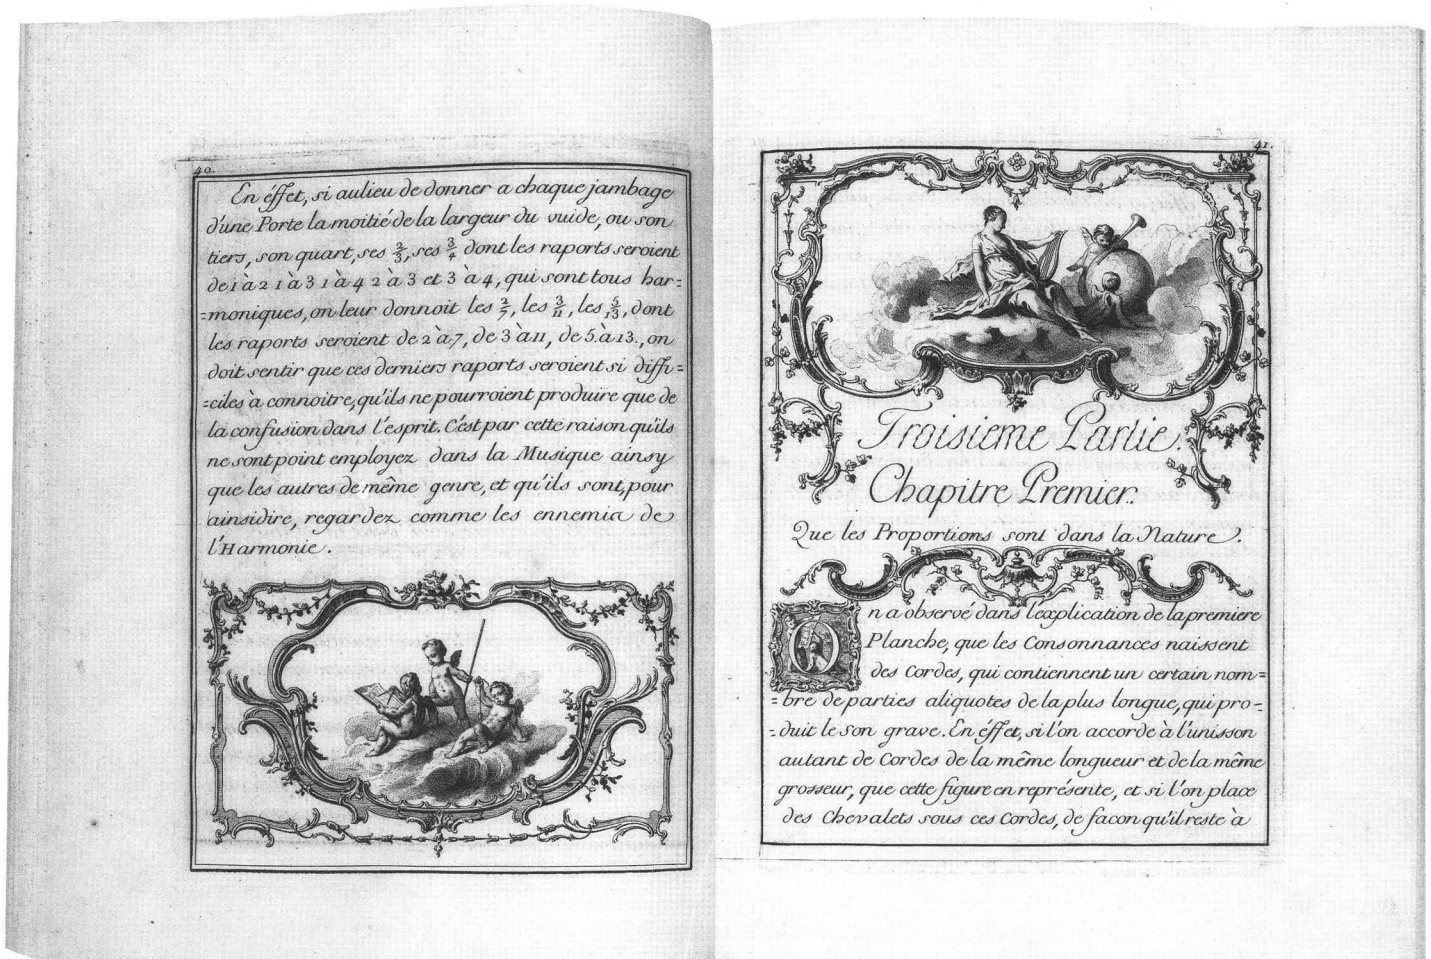 40.
En éffet, si aulieu de donner a chaque jambage
d'une Porte la moitié de la largeur du vuide, ou son
tiers, son quart, ses 2/3, ses 3/4 dont les raports seroient
de 1 à 2 1 à 3 1 à 4 2 à 3 et 3 à 4, qui sont tous har=
=moniques, on leur donnoit les 2/7, les 3/11, les 5/13, dont
les raports seroient de 2 à 7, de 3 à 11, de 5. à 13., on
doit sentir que ces derniers raports seroient si diffi=
=ciles à connoitre, qu'ils ne pourroient produire que de
la confusion dans l'esprit. C'est par cette raison qu'ils
ne sont point employez dans la Musique ainsy
que les autres de même genre, et qu'ils sont, pour
ainsidire, regardez comme les ennemis de
l'Harmonie.
41.
Troisieme Partie.
Chapitre Premier.
Que les Proportions sont dans la Nature.
On a observé dans l'explication de la premiere
Planche, que les Consonnances naissent
des Cordes, qui contiennent un certain nom=
=bre de parties aliquotes de la plus longue, qui pro=
=duit le son grave. En éffet, si l'on accorde à l'unisson
autant de Cordes de la même longueur et de la même
grosseur, que cette figure en représente, et si l'on place
des Chevalets sous ces Cordes, de facon qu'il reste à